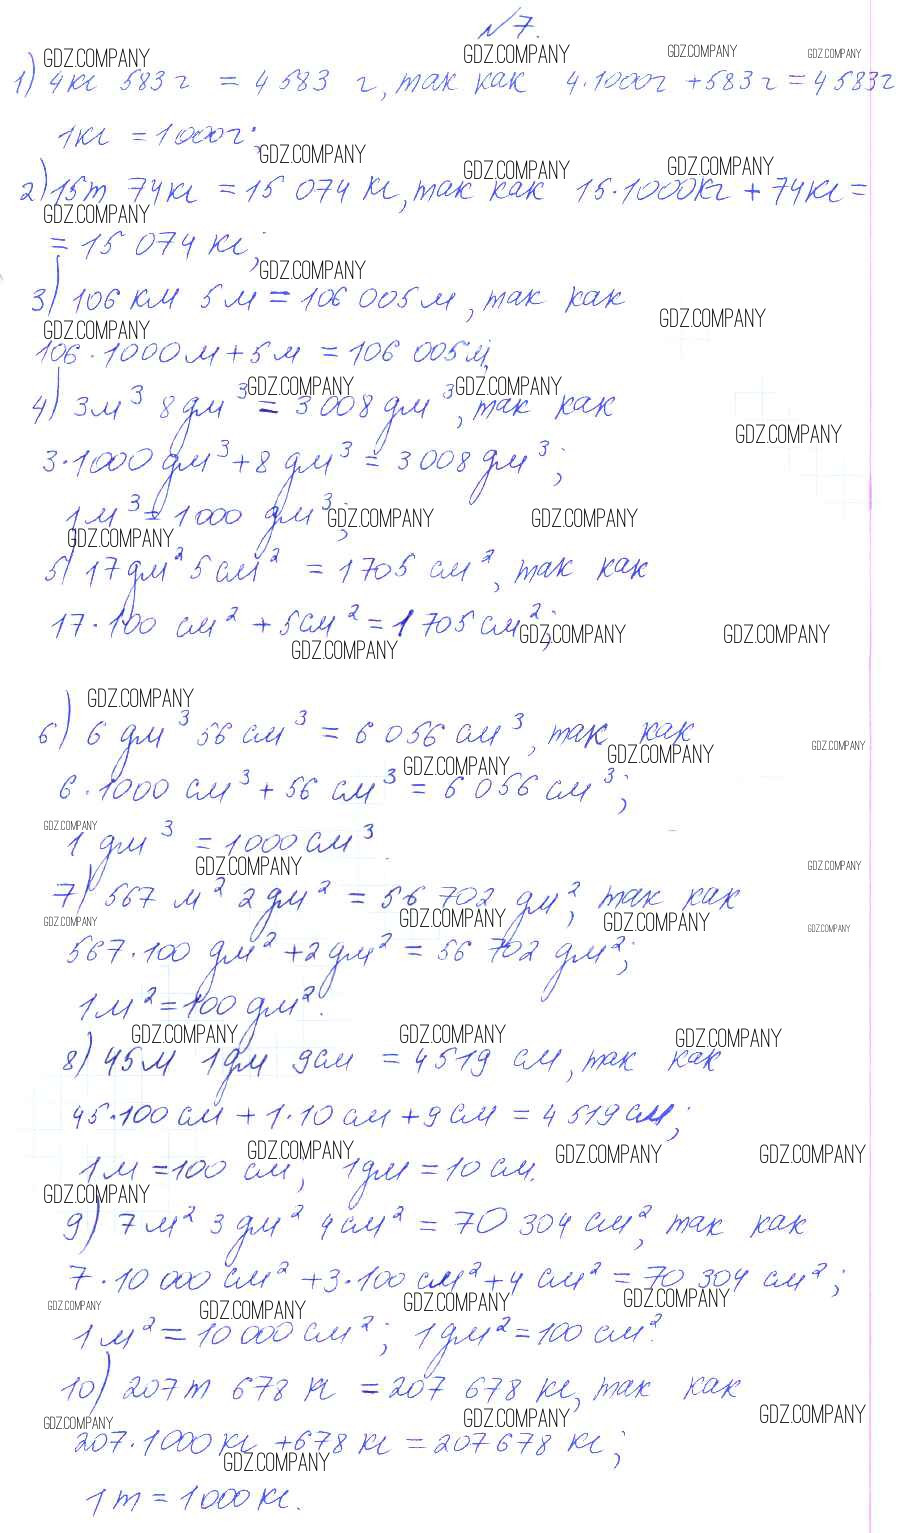 №7.
GDZ.COMPANY GDZ.COMPANY GDZ.COMPANY GDZ.COMPANY
1) 4кг 583г = 4583 г, так как 4·1000г + 583г = 4583г
1кг = 1000г;
GDZ.COMPANY GDZ.COMPANY GDZ.COMPANY
2) 15т 74кг = 15 074 кг, так как 15·1000кг + 74кг =
GDZ.COMPANY
= 15 074 кг;
GDZ.COMPANY
3) 106 км 5м = 106 005м, так как
GDZ.COMPANY GDZ.COMPANY
106·1000м + 5м = 106 005м;
GDZ.COMPANY GDZ.COMPANY
4) 3м³ 8 дм³ = 3 008 дм³, так как
GDZ.COMPANY
3·1000 дм³ + 8 дм³ = 3 008 дм³;
1м³ = 1000 дм³;
GDZ.COMPANY GDZ.COMPANY
GDZ.COMPANY
5) 17дм² 5см² = 1705 см², так как
17·100 см² + 5см² = 1 705 см²;
GDZ.COMPANY GDZ.COMPANY
GDZ.COMPANY
GDZ.COMPANY
6) 6 дм³ 56 см³ = 6 056 см³, так как
GDZ.COMPANY GDZ.COMPANY
GDZ.COMPANY
6·1000 см³ + 56 см³ = 6 056 см³;
GDZ.COMPANY
1 дм³ = 1000 см³
GDZ.COMPANY GDZ.COMPANY
7) 567 м² 2дм² = 56 702 дм², так как
GDZ.COMPANY GDZ.COMPANY GDZ.COMPANY GDZ.COMPANY
567·100 дм² + 2 дм² = 56 702 дм²;
1м² = 100 дм².
GDZ.COMPANY GDZ.COMPANY GDZ.COMPANY
8) 45м 1дм 9см = 4519 см, так как
45·100 см + 1·10 см + 9см = 4 519см;
GDZ.COMPANY GDZ.COMPANY GDZ.COMPANY
1м = 100 см, 1дм = 10 см.
GDZ.COMPANY
9) 7м² 3 дм² 4см² = 70 304 см², так как
7·10 000 см² + 3·100 см² + 4 см² = 70 304 см²;
GDZ.COMPANY GDZ.COMPANY GDZ.COMPANY GDZ.COMPANY
1м² = 10 000 см²; 1дм² = 100 см².
10) 207т 678 кг = 207 678 кг, так как
GDZ.COMPANY GDZ.COMPANY GDZ.COMPANY
207·1000 кг + 678 кг = 207 678 кг;
GDZ.COMPANY
1т = 1000кг.